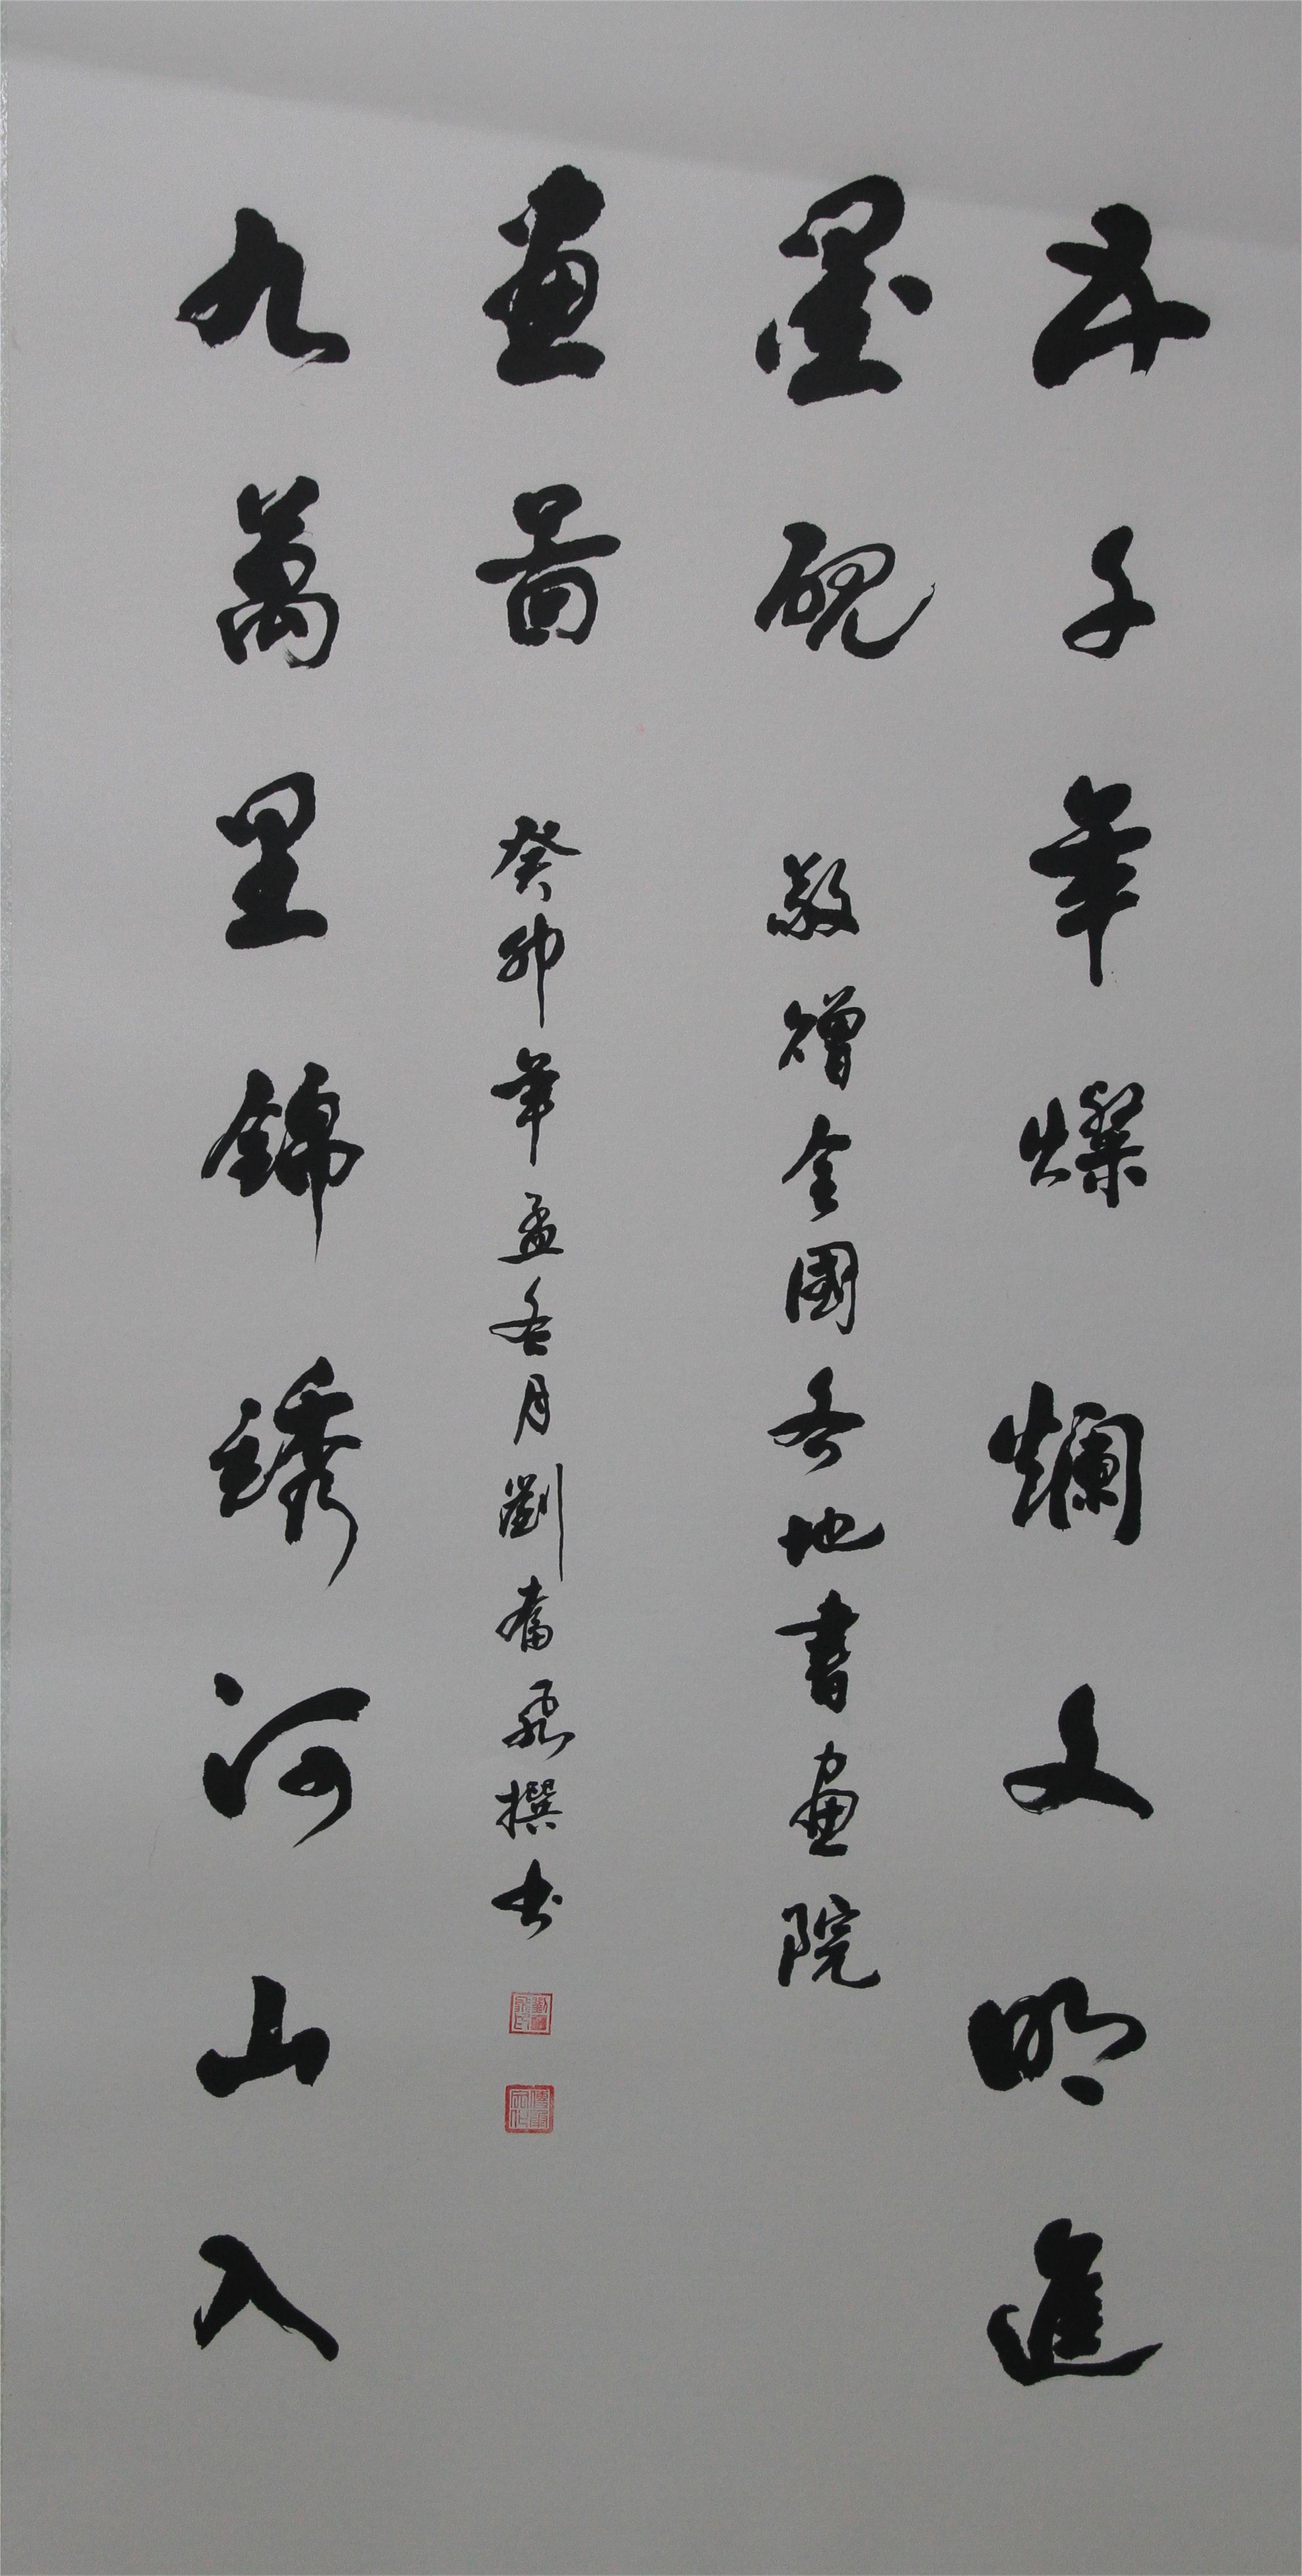 五千年燦爛文明進
墨硯
敬贈全國各地書畫院
九萬里錦繡河山入
畫圖
癸卯年孟冬月劉奮撰书